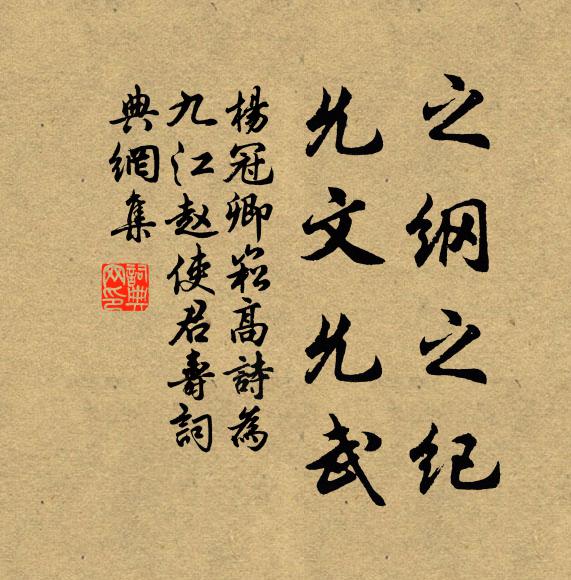 之纲之纪
允文允武
楊冠卿崧高詩為
九江赵使君壽詞
典網集
詞典網印